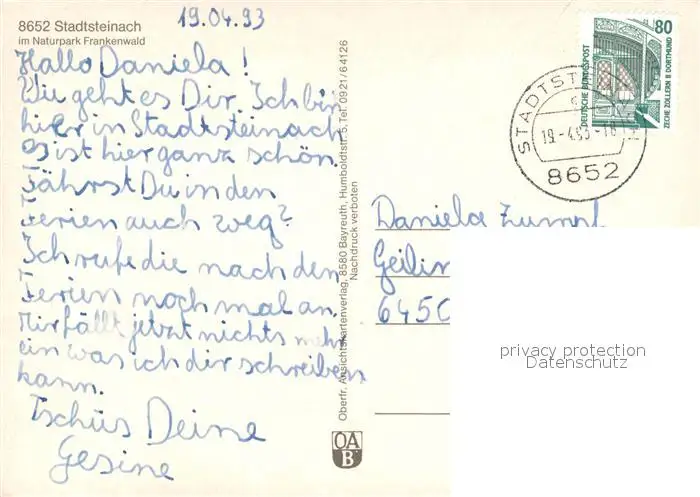 8652 Stadtsteinach
im Naturpark Frankenwald
19.04.93
Hallo Daniela!
Wie geht es Dir. Ich bin
hier in Stadtsteinach
Es ist hier ganz schön.
Fährst Du in den
Ferien auch weg?
Ich rufe die nach den
Ferien noch mal an.
Mir fällt jetzt nichts mehr
ein was ich dir schreiben
kann.
Tschüs Deine
Gesine
Oberfr. Ansichtskartenverlag, 8580 Bayreuth, Humboldtstr. 5, Tel. 0921/64126
Nachdruck verboten
OA
B
80
DEUTSCHE BUNDESPOST
ZECHE ZOLLERN II DORTMUND
19.-4.93-18
8652
Daniela
Geilin
6450
privacy protection
Datenschutz